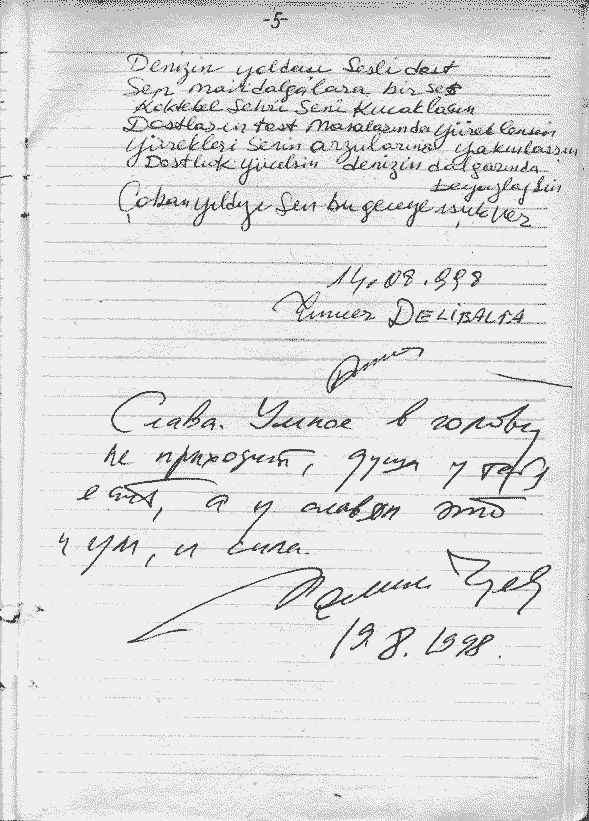 -5-
Denizin yoldası Sesli dost
Sen mavi dalgalara bir ses
Koktebel Sehri Seni Kucaklasın
Dostların tost Masalarında yüreklensin
Yürekleri Senin arzularına yakınlassın
Dostluk yücelsin denizin dalgasında
beyazlaşsın
Çoban yıldızı Sen bu geceye ışık ver
14.08.998
DELİBALTA
Слава. Умное в голову
не приходит, душа у тебя
есть, а у славян это
и ум, и сила.
19.8.1998.